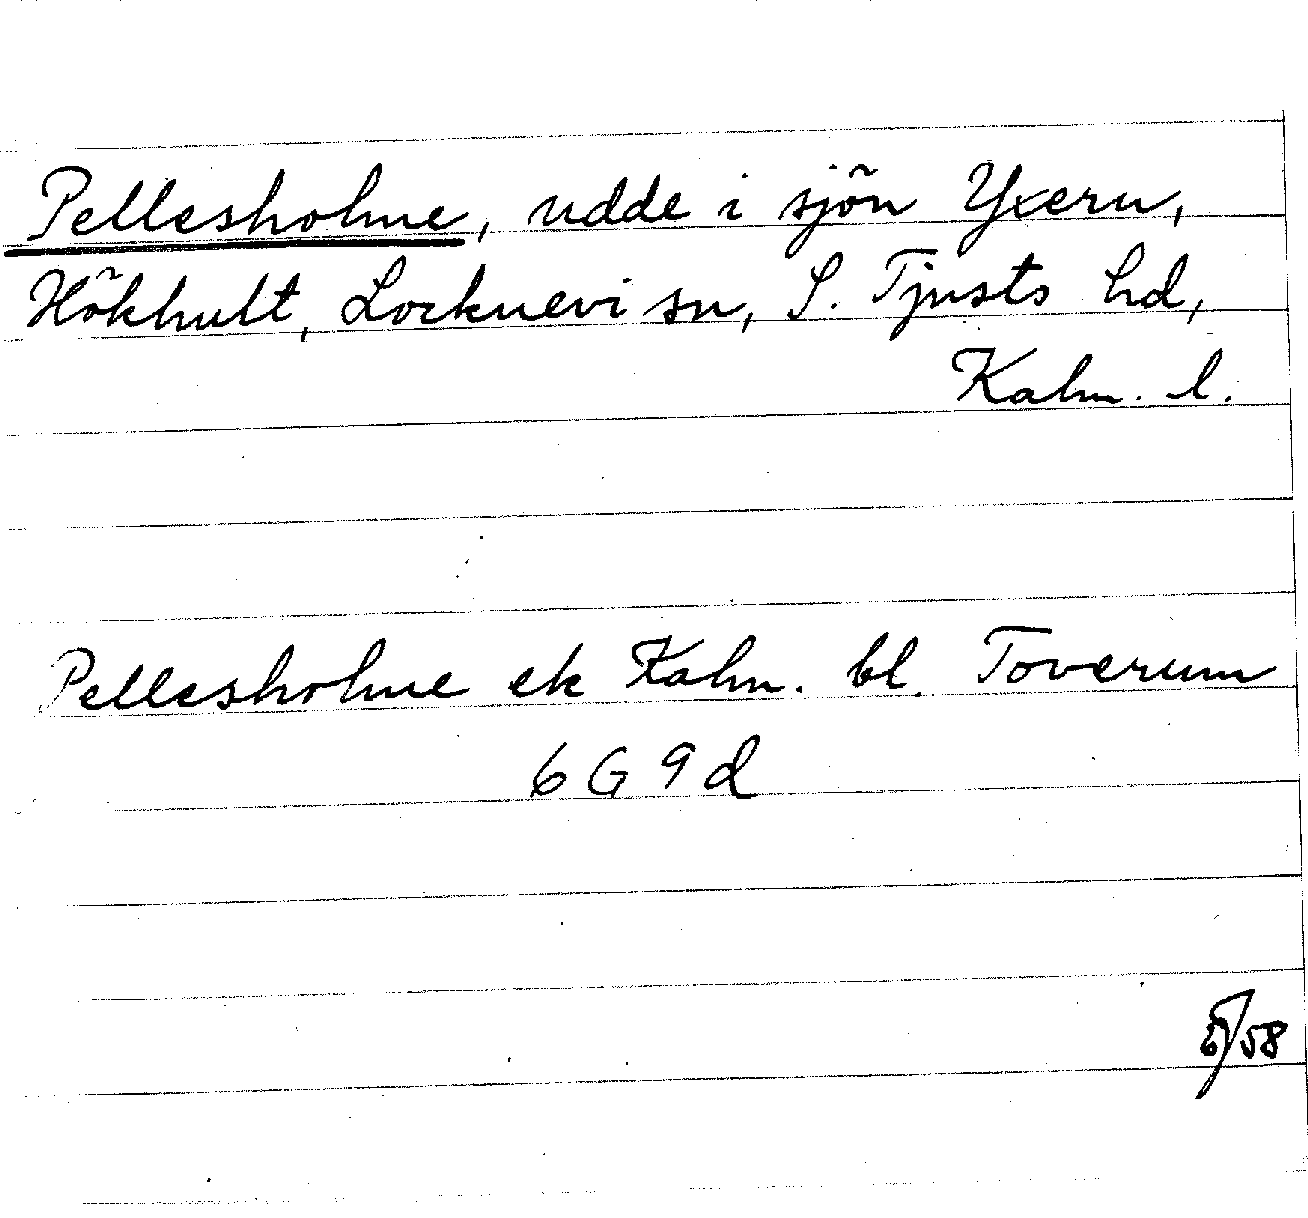 Pellesholme, udde i sjön Yxern,
Hökhult, Locknevi sn, S. Tjusts hd,
Kalm. l.
Pellesholme ek Kalm. bl. Toverum
6 G 9 d
/58